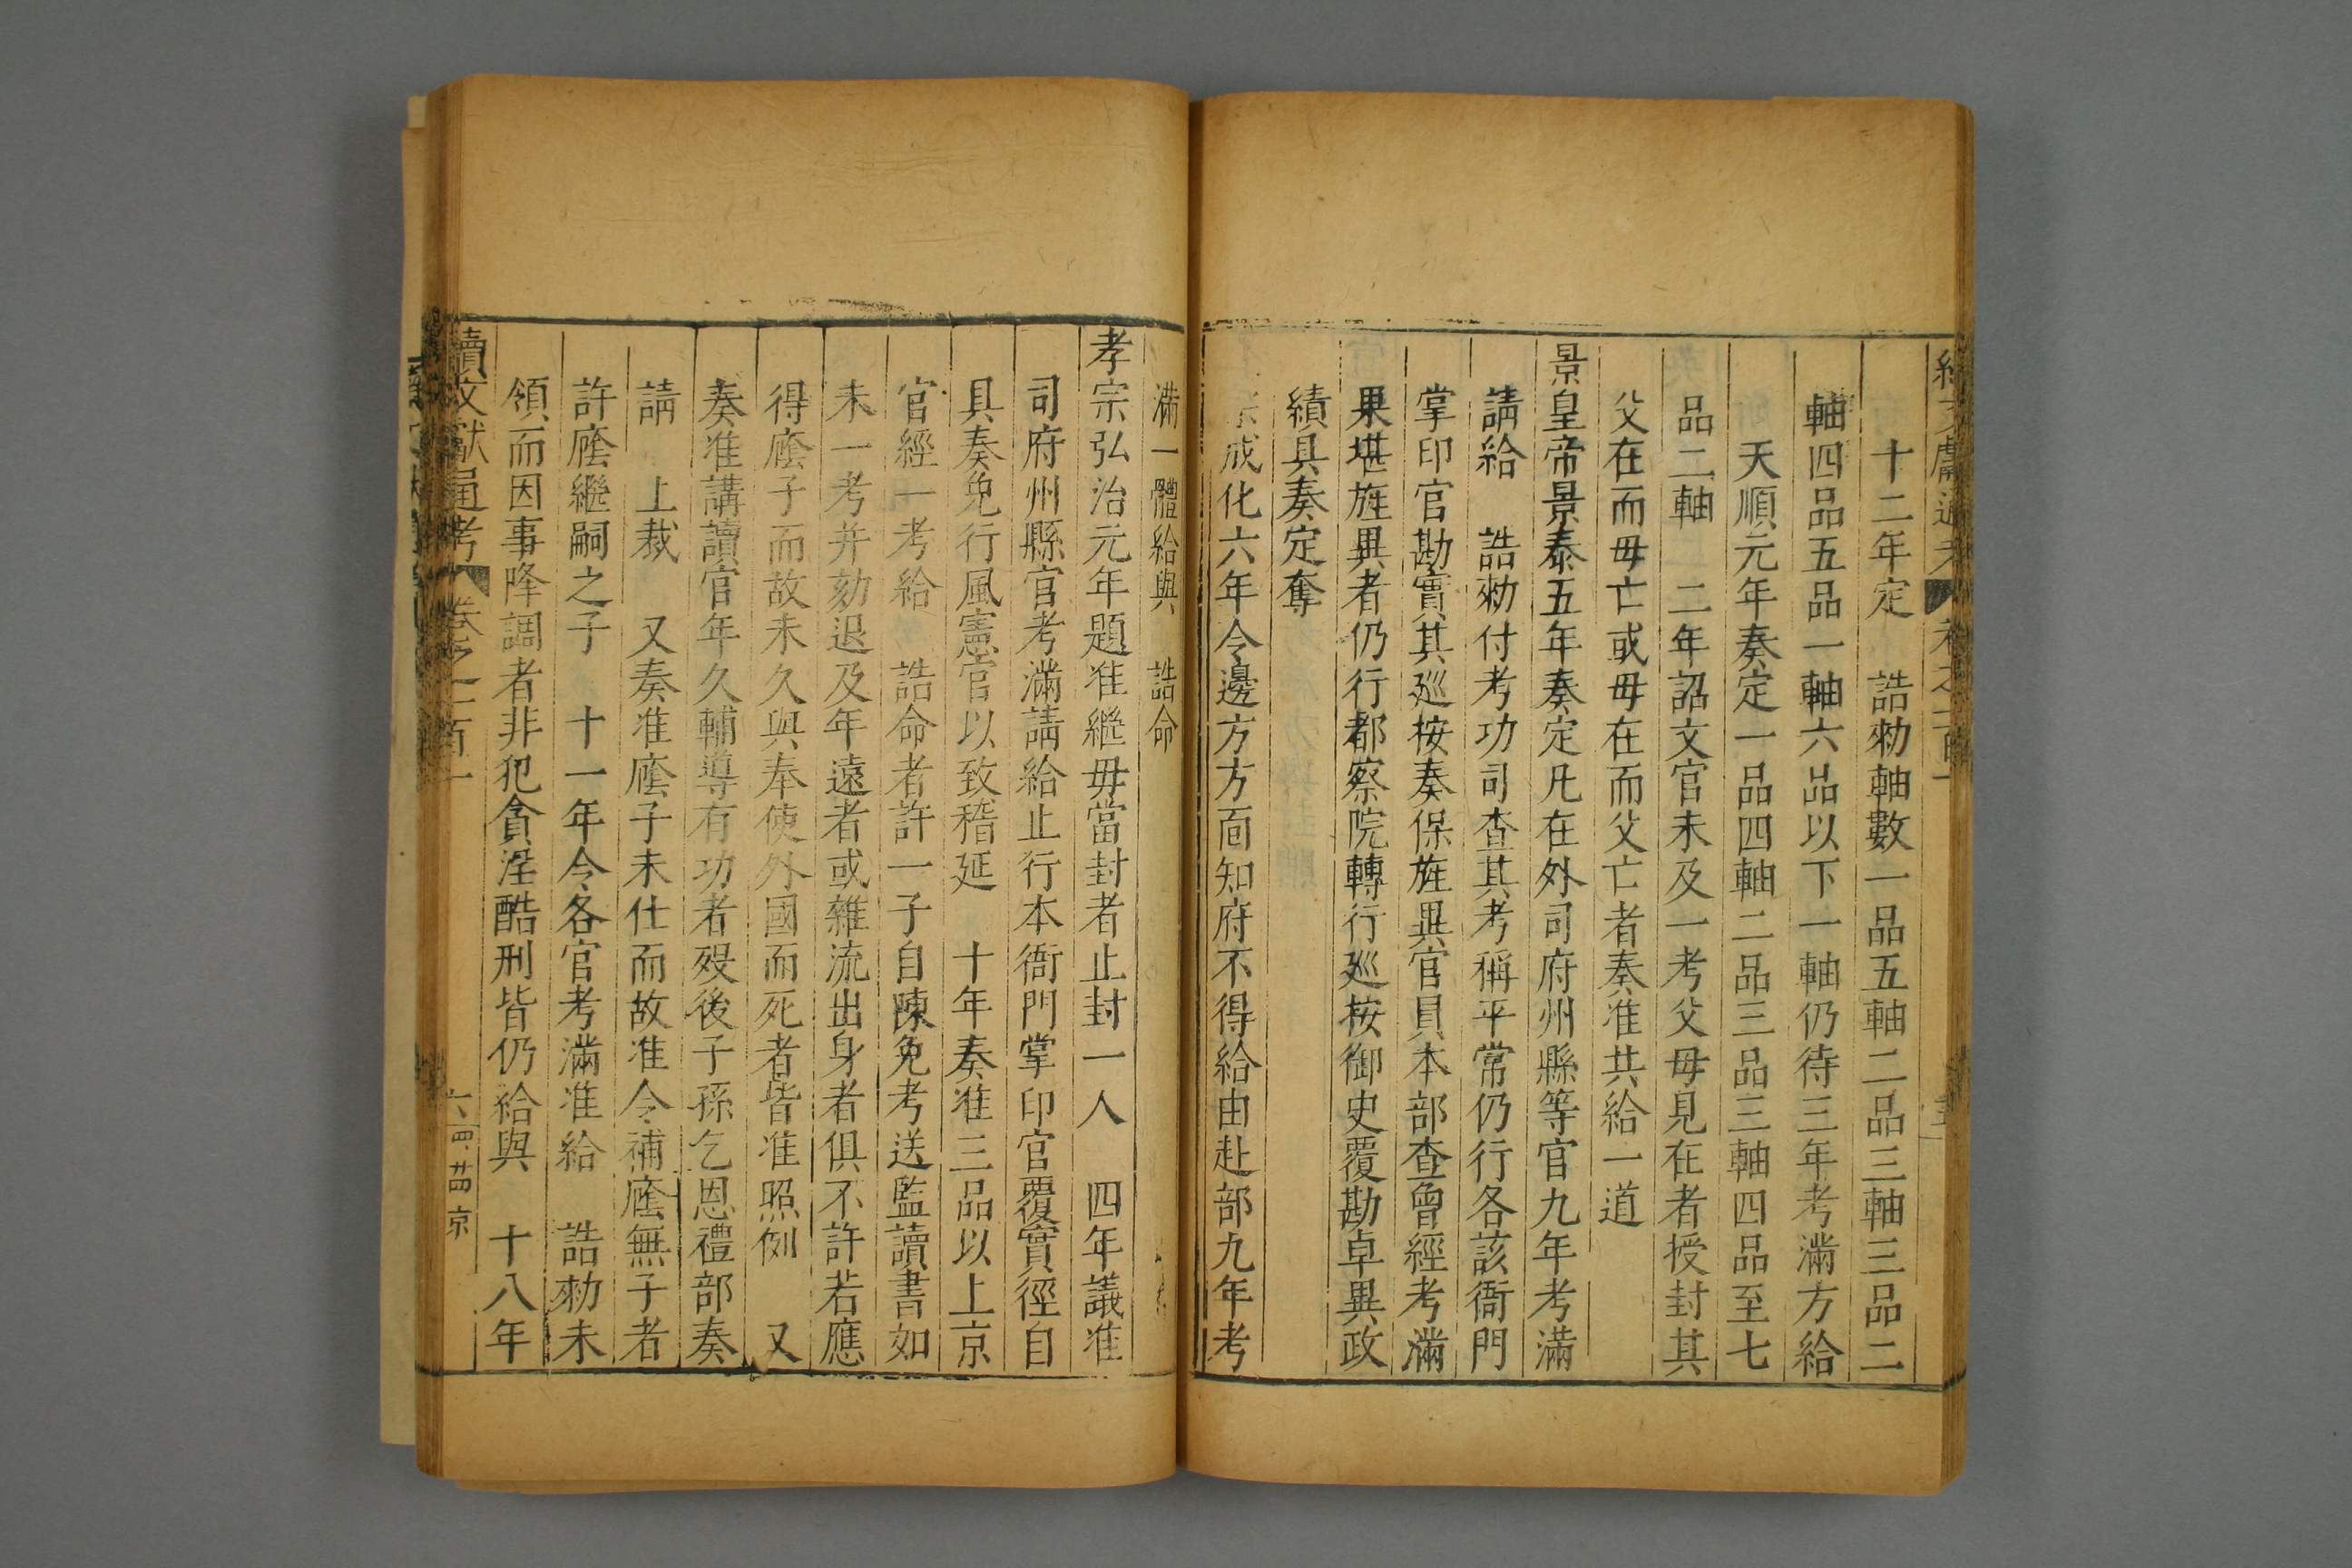 十二年定　誥勑軸數一品五軸二品三軸三品二
軸四品五品一軸六品以下一軸仍待三年考滿方給
天順元年奏定一品四軸二品三品三軸四品至七
品二軸　二年詔文官未及一考父母見在者授封其
父在而母亡或母在而父亡者奏准共給一道
景皇帝景泰五年奏定凡在外司府州縣等官九年考滿
請給　誥勑付考功司查其考稱平常仍行各該衙門
掌印官勘實其廵按奏保旌異官員本部查曾經考滿
果堪旌異者仍行都察院轉行廵按御史覆勘卓異政
績具奏定奪
成化六年令邊方方面知府不得給由赴部九年考
滿一體給與　誥命
孝宗弘治元年題准繼母當封者止封一人　四年議准
司府州縣官考滿請給止行本衙門掌印官覆實徑自
具奏免行風憲官以致稽延　十年奏准三品以上京
官經一考給　誥命者許一子自陳免考送監讀書如
未一考并劾退及年遠者或雜流出身者俱不許若應
得廕子而故未久與奉使外國而死者皆准照例　又
奏准講讀官年久輔導有功者殁後子孫乞恩禮部奏
請　上裁　又奏准廕子未仕而故准令補廕無子者
許廕繼嗣之子　十一年令各官考滿准給　誥勑未
領而因事降調者非犯貪淫酷刑皆仍給與　十八年
續文獻通考　卷之二百一